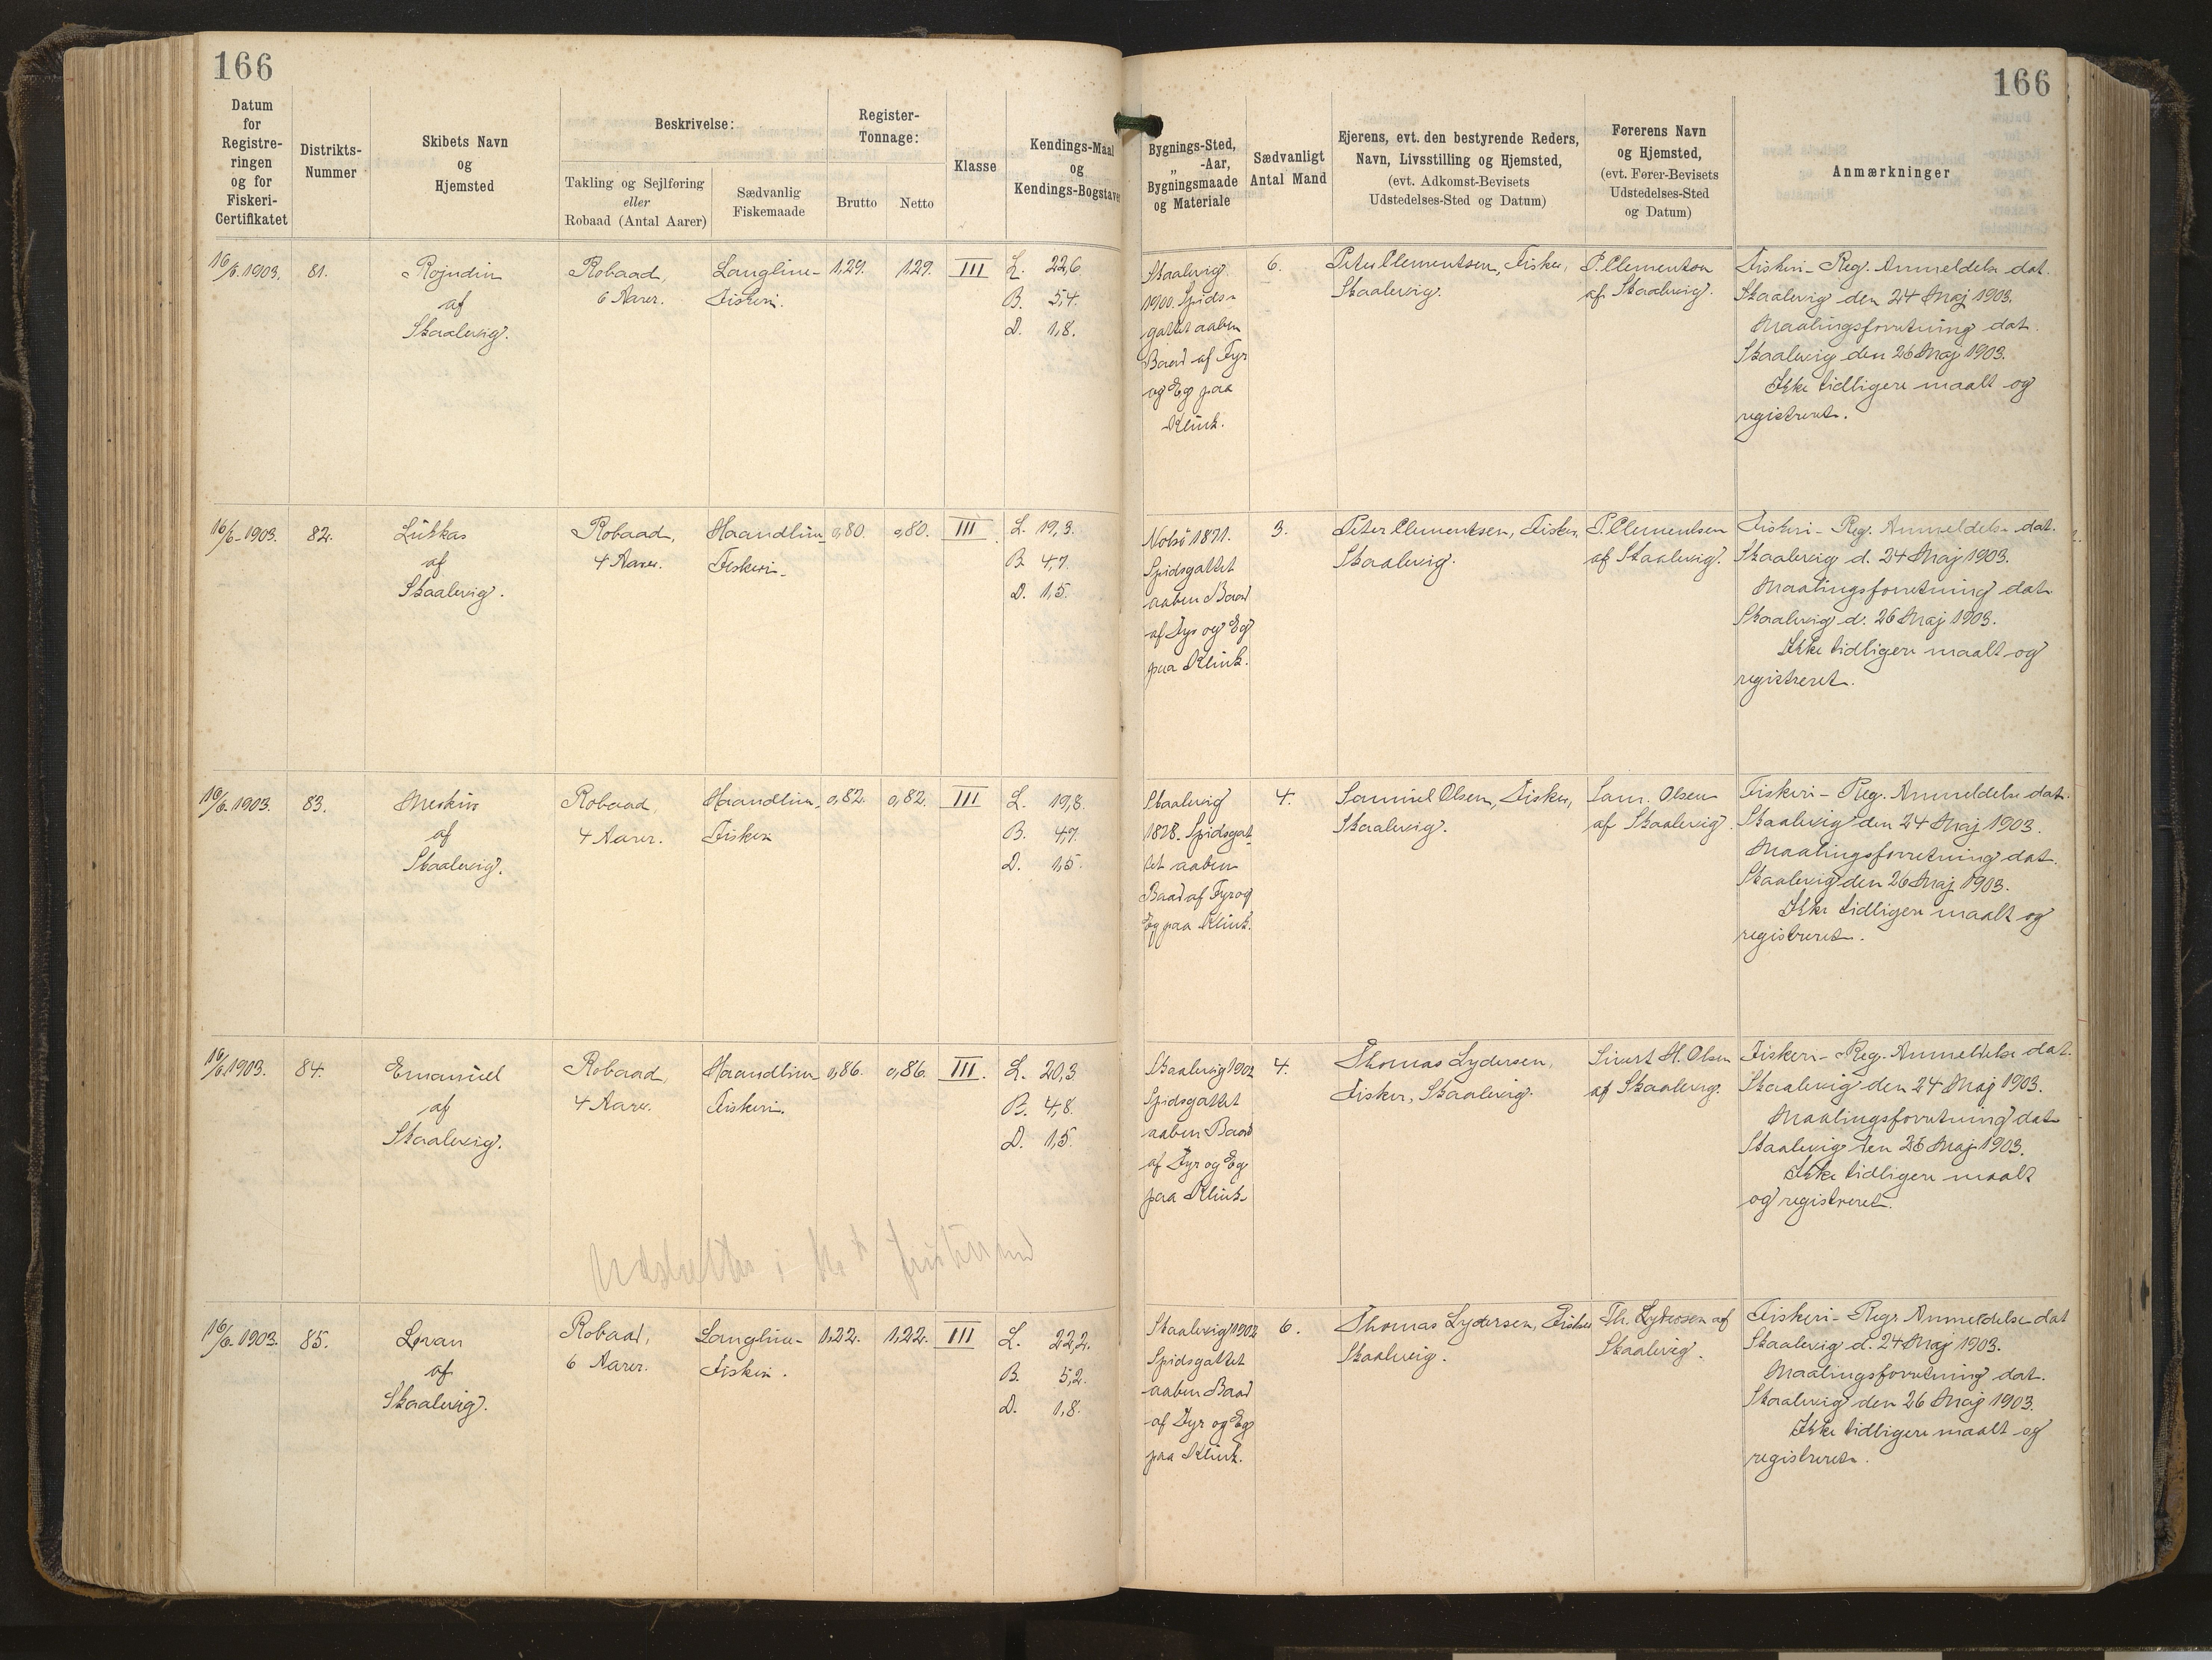 166
166
Datum
for
Registre-
ringen
og for
Fiskeri-
Certifikatet
Distrikts-
Nummer
Skibets Navn
og
Hjemsted
Beskrivelse:
Takling og Sejlføring
eller
Robaad (Antal Aarer)
Sædvanlig
Fiskemaade
Register-
Tonnage:
Brutto
Netto
Klasse
Kendings-Maal
og
Kendings-Bogstaver
Bygnings-Sted,
„ -Aar,
Bygningsmaade
og Materiale
Sædvanligt
Antal Mand
Ejerens, evt. den bestyrende Reders,
Navn, Livsstilling og Hjemsted,
(evt. Adkomst-Bevisets
Udstedelses-Sted og Datum)
Førerens Navn
og Hjemsted,
(evt. Fører-Bevisets
Udstedelses-Sted
og Datum)
Anmærkninger
16/6 1903.
81.
Rojndin
af
Skaalevig.
Robaad,
6 Aarer.
Langline-
Fiskeri.
1,29.
1,29.
III
L. 22,6.
B. 5,4.
D. 1,8.
Skaalevig.
1900. Spids-
gattet aaben
Baad af Fyr
og Eg paa
Klink.
6.
Peter Clementsen, Fisker,
Skaalevig.
P. Clementsen
af Skaalevig.
Fiskeri-Reg. Anmeldelse dat.
Skaalevig den 24 Maj 1903.
Maalingsforretning dat.
Skaalevig den 26 Maj 1903.
Ikke tidligere maalt og
registreret.
16/6 1903.
82.
Lukkas
af
Skaalevig.
Robaad,
4 Aarer.
Haandline-
Fiskeri.
0,80.
0,80.
III
L. 19,3.
B. 4,7.
D. 1,5.
Nolsö 1871.
Spidsgattet
aaben Baad
af Fyr og Eg
paa Klink.
3.
Peter Clementsen, Fisker,
Skaalevig.
P. Clementsen
af Skaalevig.
Fiskeri-Reg. Anmeldelse dat.
Skaalevig d. 24 Maj 1903.
Maalingsforretning dat.
Skaalevig d. 26 Maj 1903.
Ikke tidligere maalt og
registreret.
16/6 1903.
83.
af
Skaalevig.
Robaad,
4 Aarer.
Haandline-
Fiskeri
0,82.
0,82.
III
L. 19,8.
B. 4,7.
D. 1,5.
Skaalevig
1878. Spidsgat-
tet aaben
Baad af Fyr og
Eg paa Klink.
4.
Samuel Olsen, Fisker,
Skaalevig.
Sam. Olsen
af Skaalevig.
Fiskeri-Reg. Anmeldelse dat.
Skaalevig den 24 Maj 1903.
Maalingsforretning dat.
Skaalevig den 26 Maj 1903.
Ikke tidligere maalt og
registreret.
16/6 1903.
84.
Emanuel
af
Skaalevig.
Robaad,
4 Aarer.
Haandline-
Fiskeri.
0,86.
0,86.
III.
L. 20,3.
B. 4,8.
D. 1,5.
Skaalevig 1902
Spidsgattet
aaben Baad
af Fyr og Eg
paa Klink.
4.
Thomas Lydersen,
Fisker, Skaalevig.
Sivert H. Olsen
af Skaalevig.
Fiskeri-Reg. Anmeldelse dat.
Skaalevig den 24 Maj 1903.
Maalingsforretning dat.
Skaalevig den 26 Maj 1903.
Ikke tidligere maalt
og registreret.
16/6 1903.
85.
af
Skaalevig.
Robaad,
6 Aarer.
Langline-
Fiskeri.
1,22.
1,22.
III
L. 22,2.
B. 5,2.
D. 1,8.
Skaalevig 1902
Spidsgattet
aaben Baad
af Fyr og Eg
paa Klink.
6.
Thomas Lydersen, Fisker
Skaalevig.
Th. Lydersen af
Skaalevig.
Fiskeri-Reg. Anmeldelse dat
Skaalevig d. 24 Maj 1903.
Maalingsforretning dat.
Skaalevig den 26 Maj 1903.
Ikke tidligere maalt og
registreret.